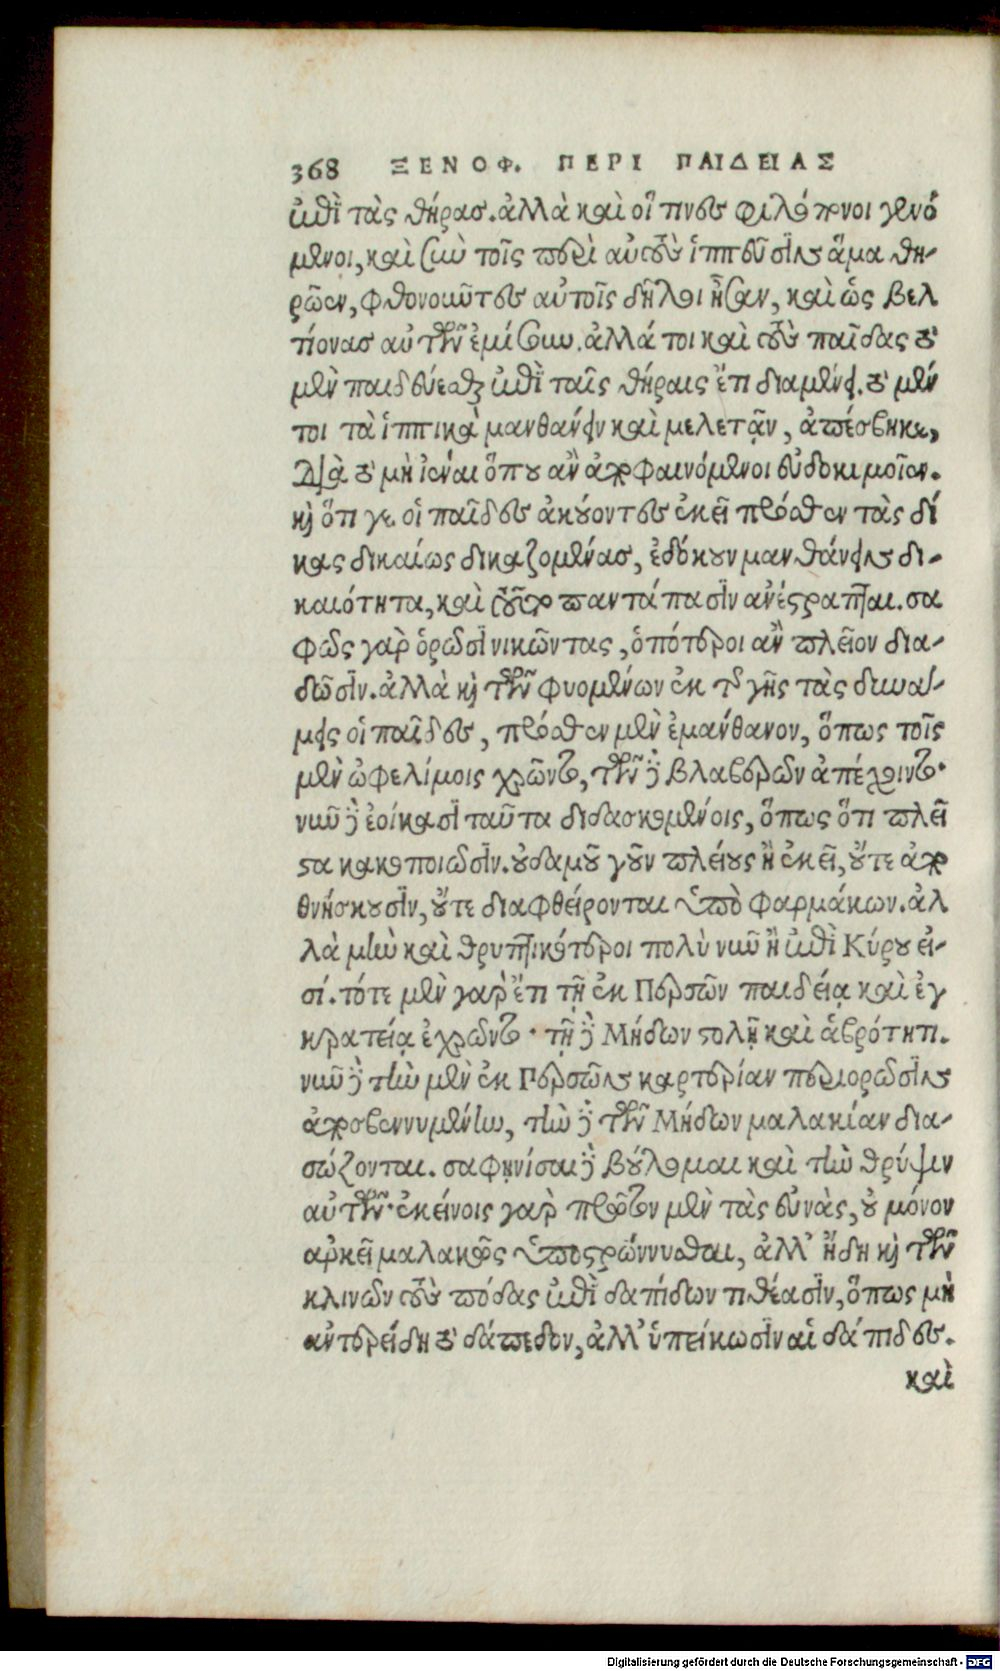 368 ΞΕΝΟΦ. ΠΕΡΙ ΠΑΙΔΕΙΑΣ
ἐπὶ τὰς θήρας. ἀλλὰ καὶ οἵ τινες φιλόπονοι γενό
μενοι, καὶ σὺν τοῖς περὶ αὐτοὺς ἱππεῦσιν ἅμα θη-
ρῷεν, φθονοῦντες αὐτοῖς δῆλοι ἦσαν, καὶ ὡς βελ
τίονας αὐτῶν ἐμίσουν. ἀλλά τοι καὶ τοὺς παῖδας τὸ
μὲν παιδεύεσθαι ἐπὶ ταῖς θήραις ἔτι διαμένει. τὸ μέν
τοι τὰ ἱππικὰ μανθάνειν καὶ μελετᾷν, ἀπέσβηκε,
Διὰ τὸ μὴ ἰέναι ὅπου ἂν ἀποφαινόμενοι εὐδοκιμοῖεν.
καὶ ὅτι γε οἱ παῖδες ἀκούοντες ἐκεῖ πρόσθεν τὰς δί
κας δικαίως δικαζομένας, ἐδόκουν μανθάνειν δι-
καιότητα, καὶ τοῦτο παντάπασιν ἀνέστραπται. σα
φῶς γὰρ ὁρῶσι νικῶντας, ὁπότεροι ἂν πλεῖον δια-
δῶσιν. ἀλλὰ καὶ τῶν φυομένων ἐκ τῆς γῆς τὰς δυνά-
μεις οἱ παῖδες, πρόσθεν μὲν ἐμάνθανον, ὅπως τοῖς
μὲν ὠφελίμοις χρῶντο, τῶν δὲ βλαβερῶν ἀπέχοιντο·
νῦν δὲ ἐοίκασι ταῦτα διδασκομένοις, ὅπως ὅτι πλεῖ
στα κακοποιῶσιν. οὐδαμοῦ γοῦν πλείους ἢ ἐκεῖ, οὔτε ἀπο
θνήσκουσιν, οὔτε διαφθείρονται ὑπὸ φαρμάκων. ἀλ
λὰ μὴν καὶ θρυπτικώτεροι πολὺ νῦν ἢ ἐπὶ Κύρου εἰ-
σί. τότε μὲν γὰρ ἔτι τῇ ἐκ Περσῶν παιδείᾳ καὶ ἐγ
κρατείᾳ ἐχρῶντο· τῇ δὲ Μήδων στολῇ καὶ ἁβρότητι.
νῦν δὲ τὴν μὲν ἐκ Περσῶν καρτερίαν περιορῶσιν
ἀποσβεννυμένην, τὴν δὲ τῶν Μήδων μαλακίαν δια-
σώζονται. σαφηνίσαι δὲ βούλομαι καὶ τὴν θρύψιν
αὐτῶν· ἐκείνοις γὰρ πρῶτον μὲν τὰς εὐνὰς, οὐ μόνον
ἀρκεῖ μαλακῶς ὑποστρώννυσθαι, ἀλλ' ἤδη καὶ τῶν
κλινῶν τοὺς πόδας ἐπὶ δαπίδων τιθέασιν, ὅπως μὴ
ἀντερείδῃ τὸ δάπεδον, ἀλλ' ὑπείκωσιν αἱ δάπιδες.
καὶ
Digitalisierung gefördert durch die Deutsche Forschungsgemeinschaft - DFG